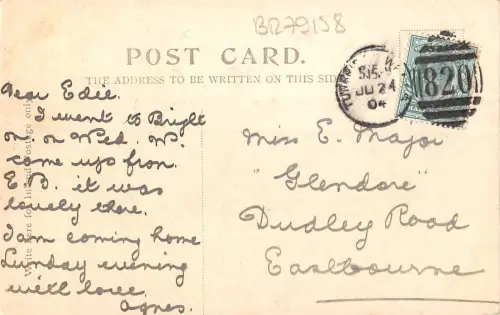 BR79158
POST CARD.
THE ADDRESS TO BE WRITTEN ON THIS SIDE
5.15
JU 24
04
820
Dear Edie.
I went to Bright
on on Wed. W.
come up from
E B. it was
lovely there.
I am coming home
Sunday evening
with love
Agnes.
Miss E. Major
"Glendore"
Dudley Road
Eastbourne